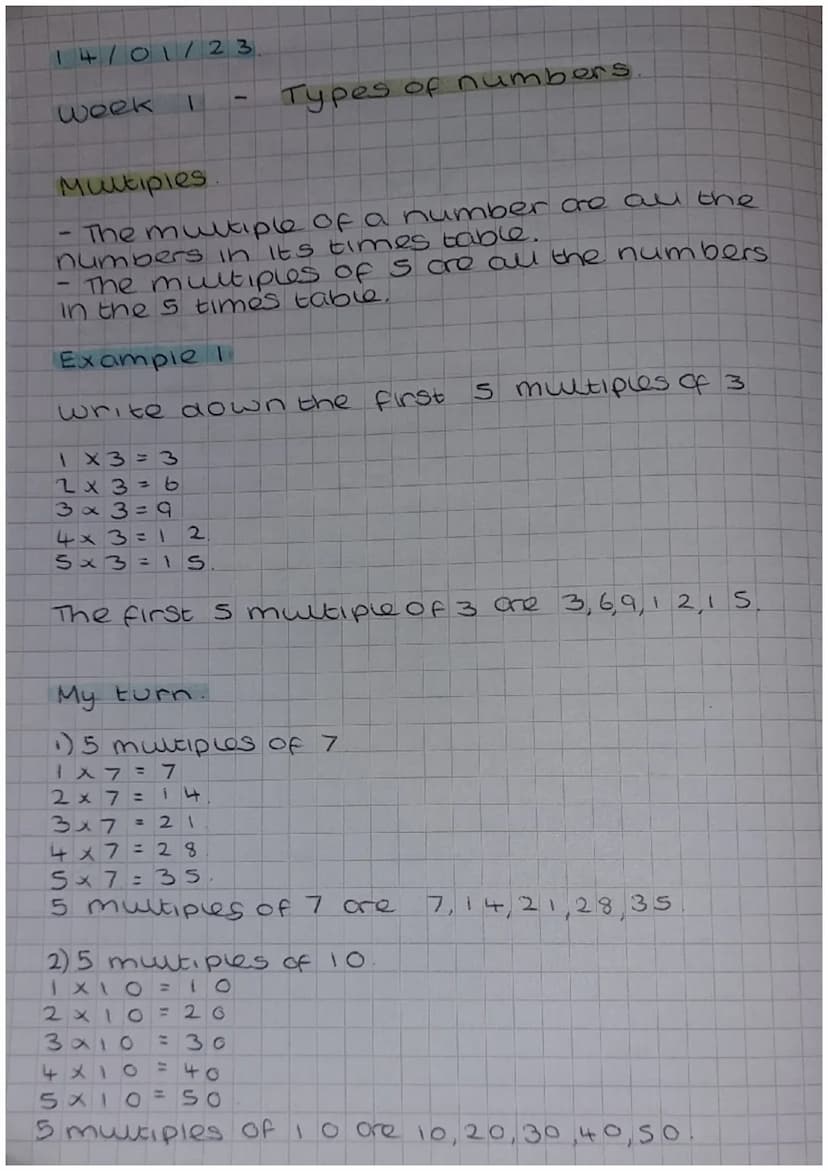 14/01/23.
Week 1 - Types of numbers.
Multiples.
- The multiple of a number are all the
numbers in its times table.
- The multiples of 5 are all the numbers
in the 5 times table.
Example 1.
Write down the first 5 multiples of 3
1 x 3 = 3
2 x 3 = 6
3 x 3 = 9
4 x 3 = 12.
5 x 3 = 15.
The first 5 multiple of 3 are 3,6,9,12,15.
My turn.
1) 5 multiples of 7
1 x 7 = 7
2 x 7 = 14.
3 x 7 = 21
4 x 7 = 28
5 x 7 = 35.
5 multiples of 7 are 7,14,21,28,35.
2) 5 multiples of 10.
1 x 10 = 10
2 x 10 = 20
3 x 10 = 30
4 x 10 = 40
5 x 10 = 50
5 multiples of 10 are 10,20,30,40,50.